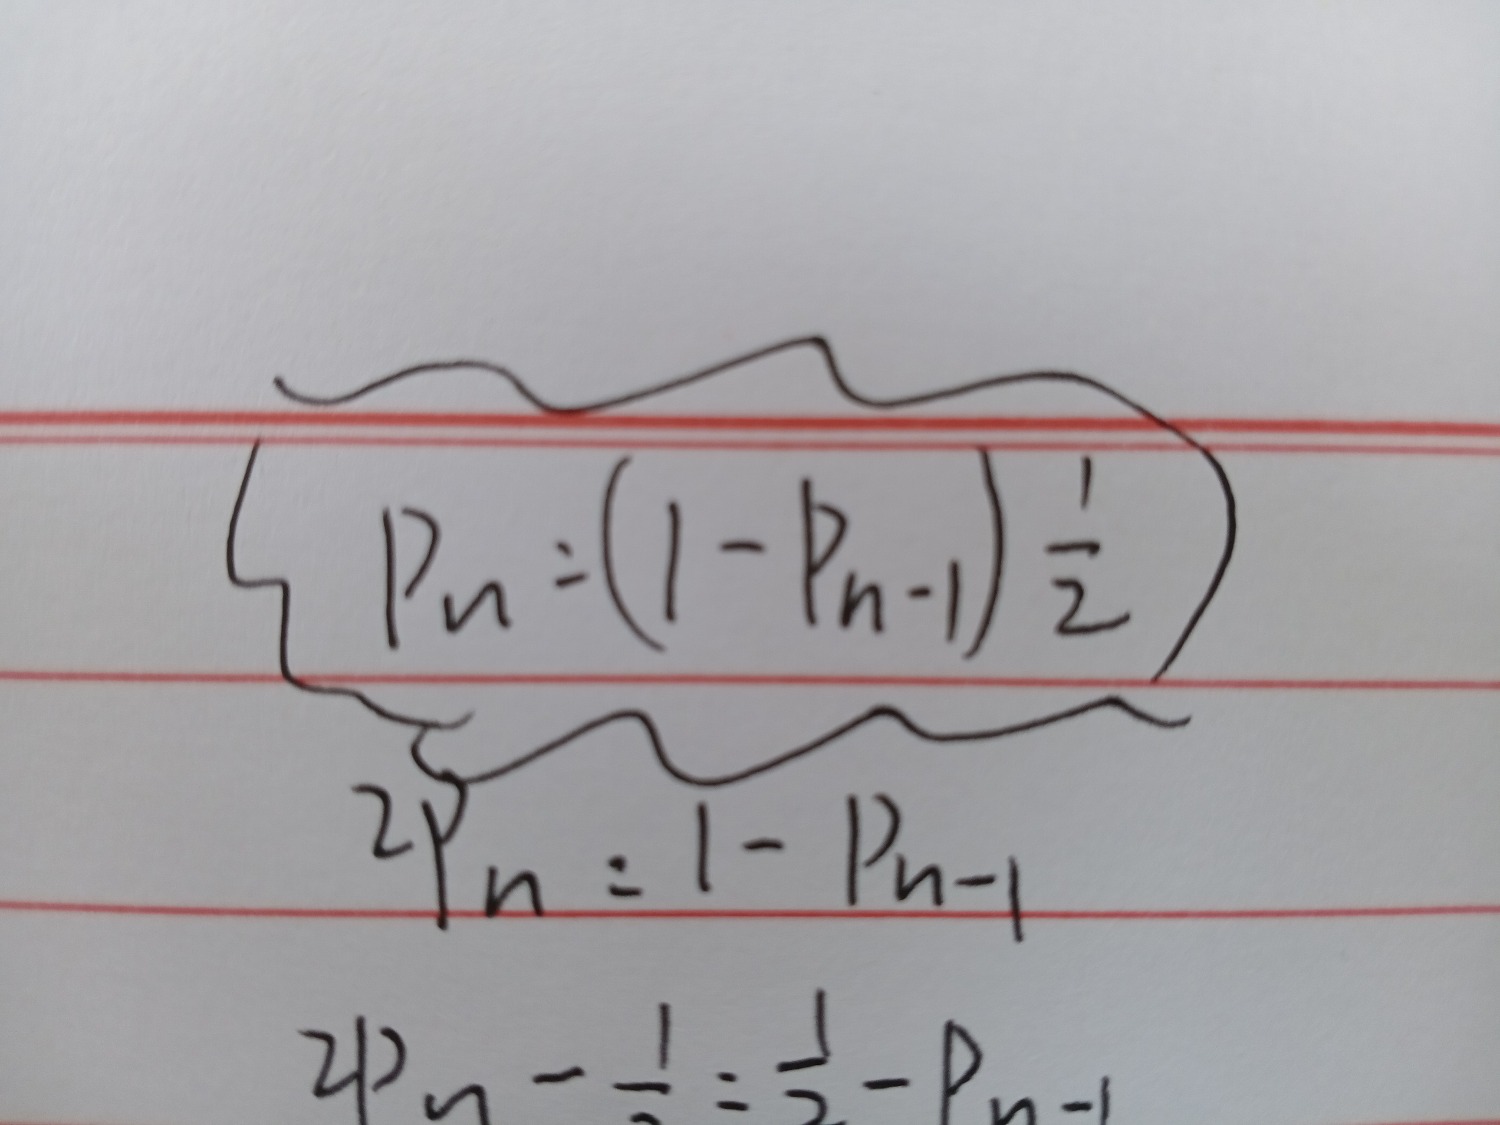 Pn = (1 - Pn-1) 1/2
2Pn = 1 - Pn-1
2Pn - 1/2 = 1/2 - Pn-1